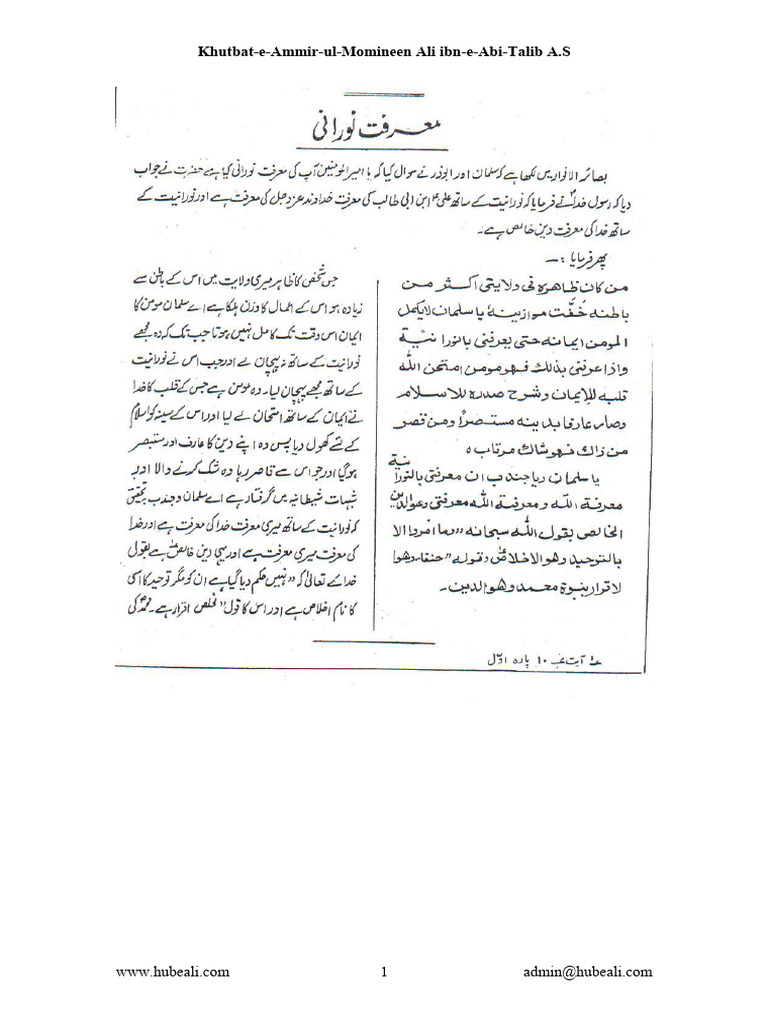 Khutbat-e-Ammir-ul-Momineen Ali ibn-e-Abi-Talib A.S
معرفت نورانی
بصائر الانوار میں لکھا ہے کہ سلمان اور ابوذر نے سوال کیا کہ یا امیر المومنین آپ کی معرفت نورانی کیا ہے حضرت نے جواب
دیا کہ رسول خدا نے فرمایا کہ نورانیت کے ساتھ علی ابن ابی طالب کی معرفت خداوند عزوجل کی معرفت ہے اور نورانیت کے
ساتھ خدا کی معرفت دین خالص ہے۔
پھر فرمایا :۔
من کان ظاھرہ فی ولایتی اکثر من
باطنہ خفّت موازینہٗ یا سلمان لایکمل
المومن ایمانہ حتی یعرفنی بالنورانیة
واذا عرفنی بذلک فھو مومن امتحن اللہ
قلبہ للایمان وشرح صدرہ للاسلام
وصار عارفا بدینہ مستبصراً ومن قصر
من ذاک فھو شاک مرتاب ہ
یا سلمان ویا جندب ان معرفتی بالنورانیة
معرفة اللہ و معرفة اللہ معرفتی وھو الدین
الخالص بقول اللہ سبحانہ "وما امروا الا
بالتوحید وھو الاخلاص وقولہ "حنفاء وھو
لاقرار بنبوة محمد وھو الدین۔
جس شخص کا ظاہر میری ولایت میں اس کے باطن سے
زیادہ ہو اس کے اعمال کا وزن ہلکا ہے اے سلمان مومن کا
ایمان اس وقت تک کامل نہیں ہوتا جب تک کہ وہ مجھے
نورانیت کے ساتھ نہ پہچان لے اور جب اس نے نورانیت
کے ساتھ مجھے پہچان لیا۔ وہ مومن ہے جس کے قلب کا خدا
نے ایمان کے ساتھ امتحان لے لیا اور اس کے سینہ کو اسلام
کے لئے کھول دیا پس وہ اپنے دین کا عارف اور مستبصر
ہو گیا اور جو اس سے قاصر رہا وہ شک کرنے والا اور
شبہات شیطانیہ میں گرفتار ہے اے سلمان و جندب بتحقیق
کہ نورانیت کے ساتھ میری معرفت خدا کی معرفت ہے اور خدا
کی معرفت میری معرفت ہے اور یہی دین خالص ہے بقول
خدائے تعالیٰ کہ "نہیں حکم دیا گیا ہے ان کو مگر توحید کا اسی
کا نام اخلاص ہے اور اس کا قول" مخلص اقرار ہے۔ محمد کی
آیت ۱۰ پارہ اوّل
www.hubeali.com
1
admin@hubeali.com